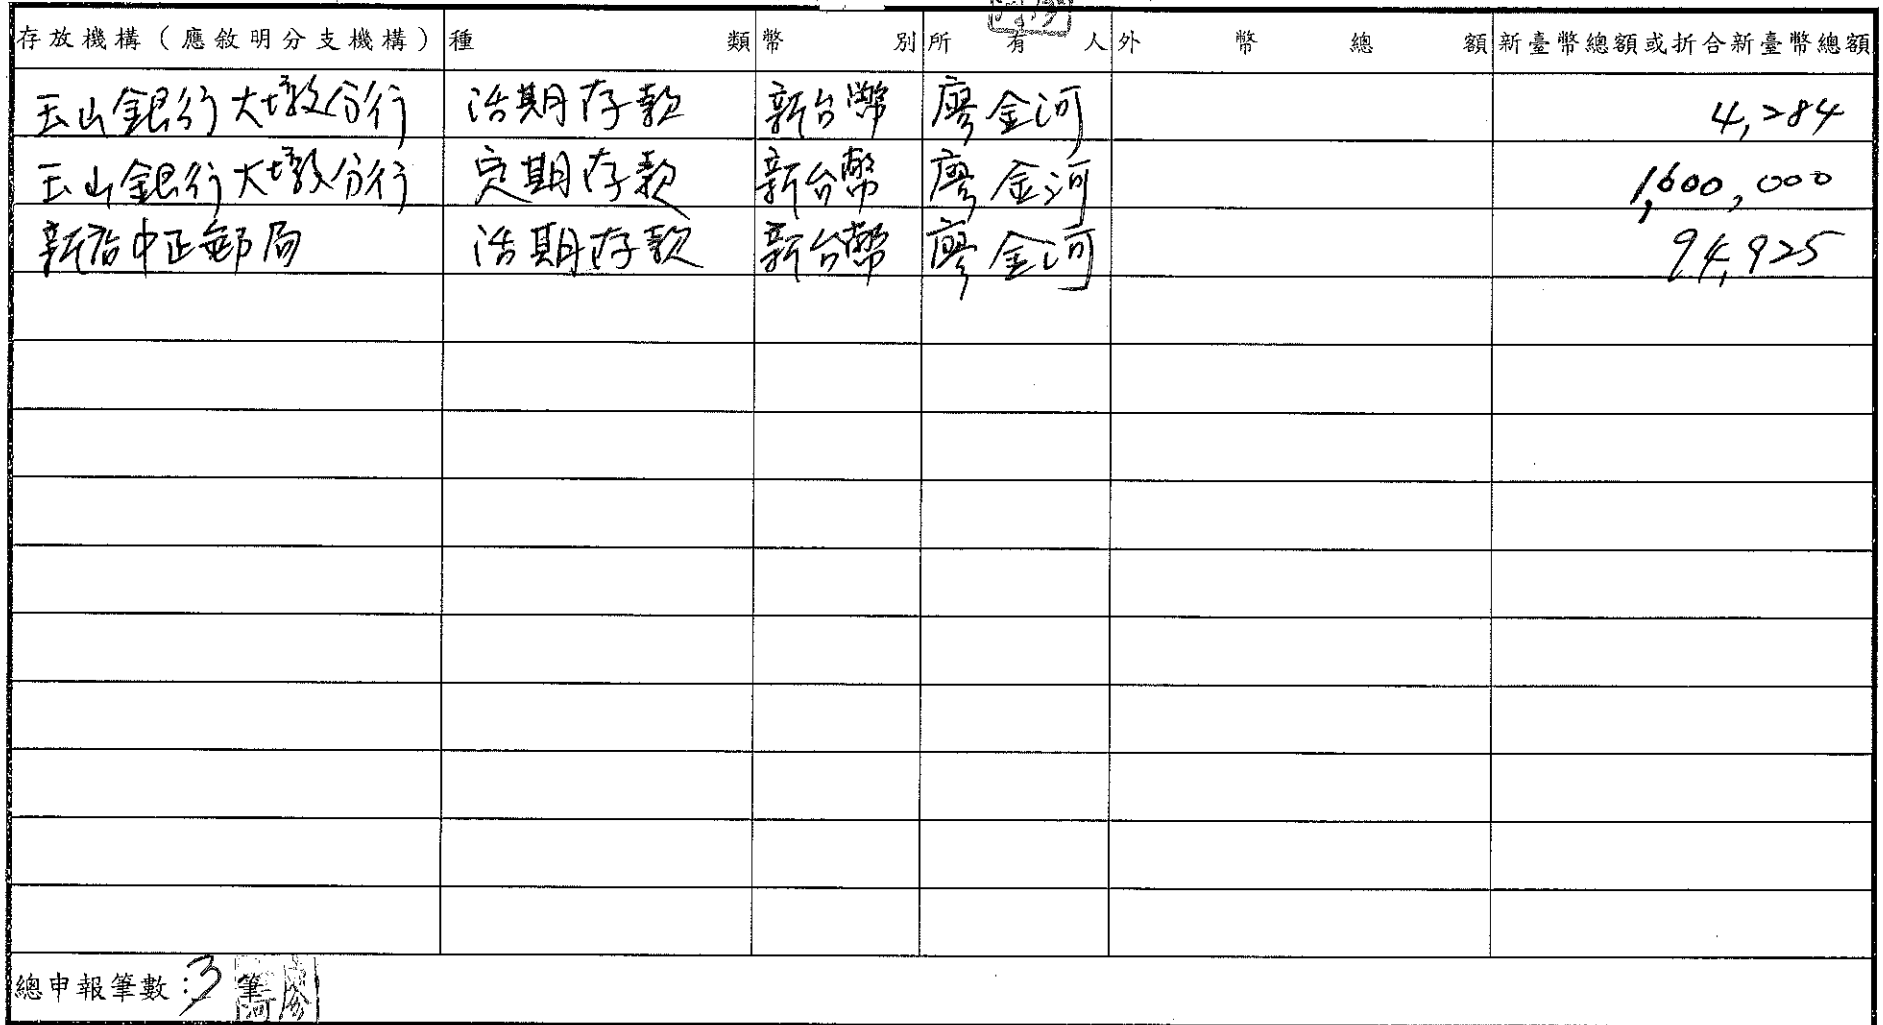 存放機構(應敘明分支機構) 種類 幣別 所有人 外幣總額 新臺幣總額或折合新臺幣總額
玉山銀行大墩分行 活期存款 新台幣 廖金河 4,284
玉山銀行大墩分行 定期存款 新台幣 廖金河 1,600,000
中正郵局 活期存款 新台幣 廖金河 94,925
總申報筆數:3筆